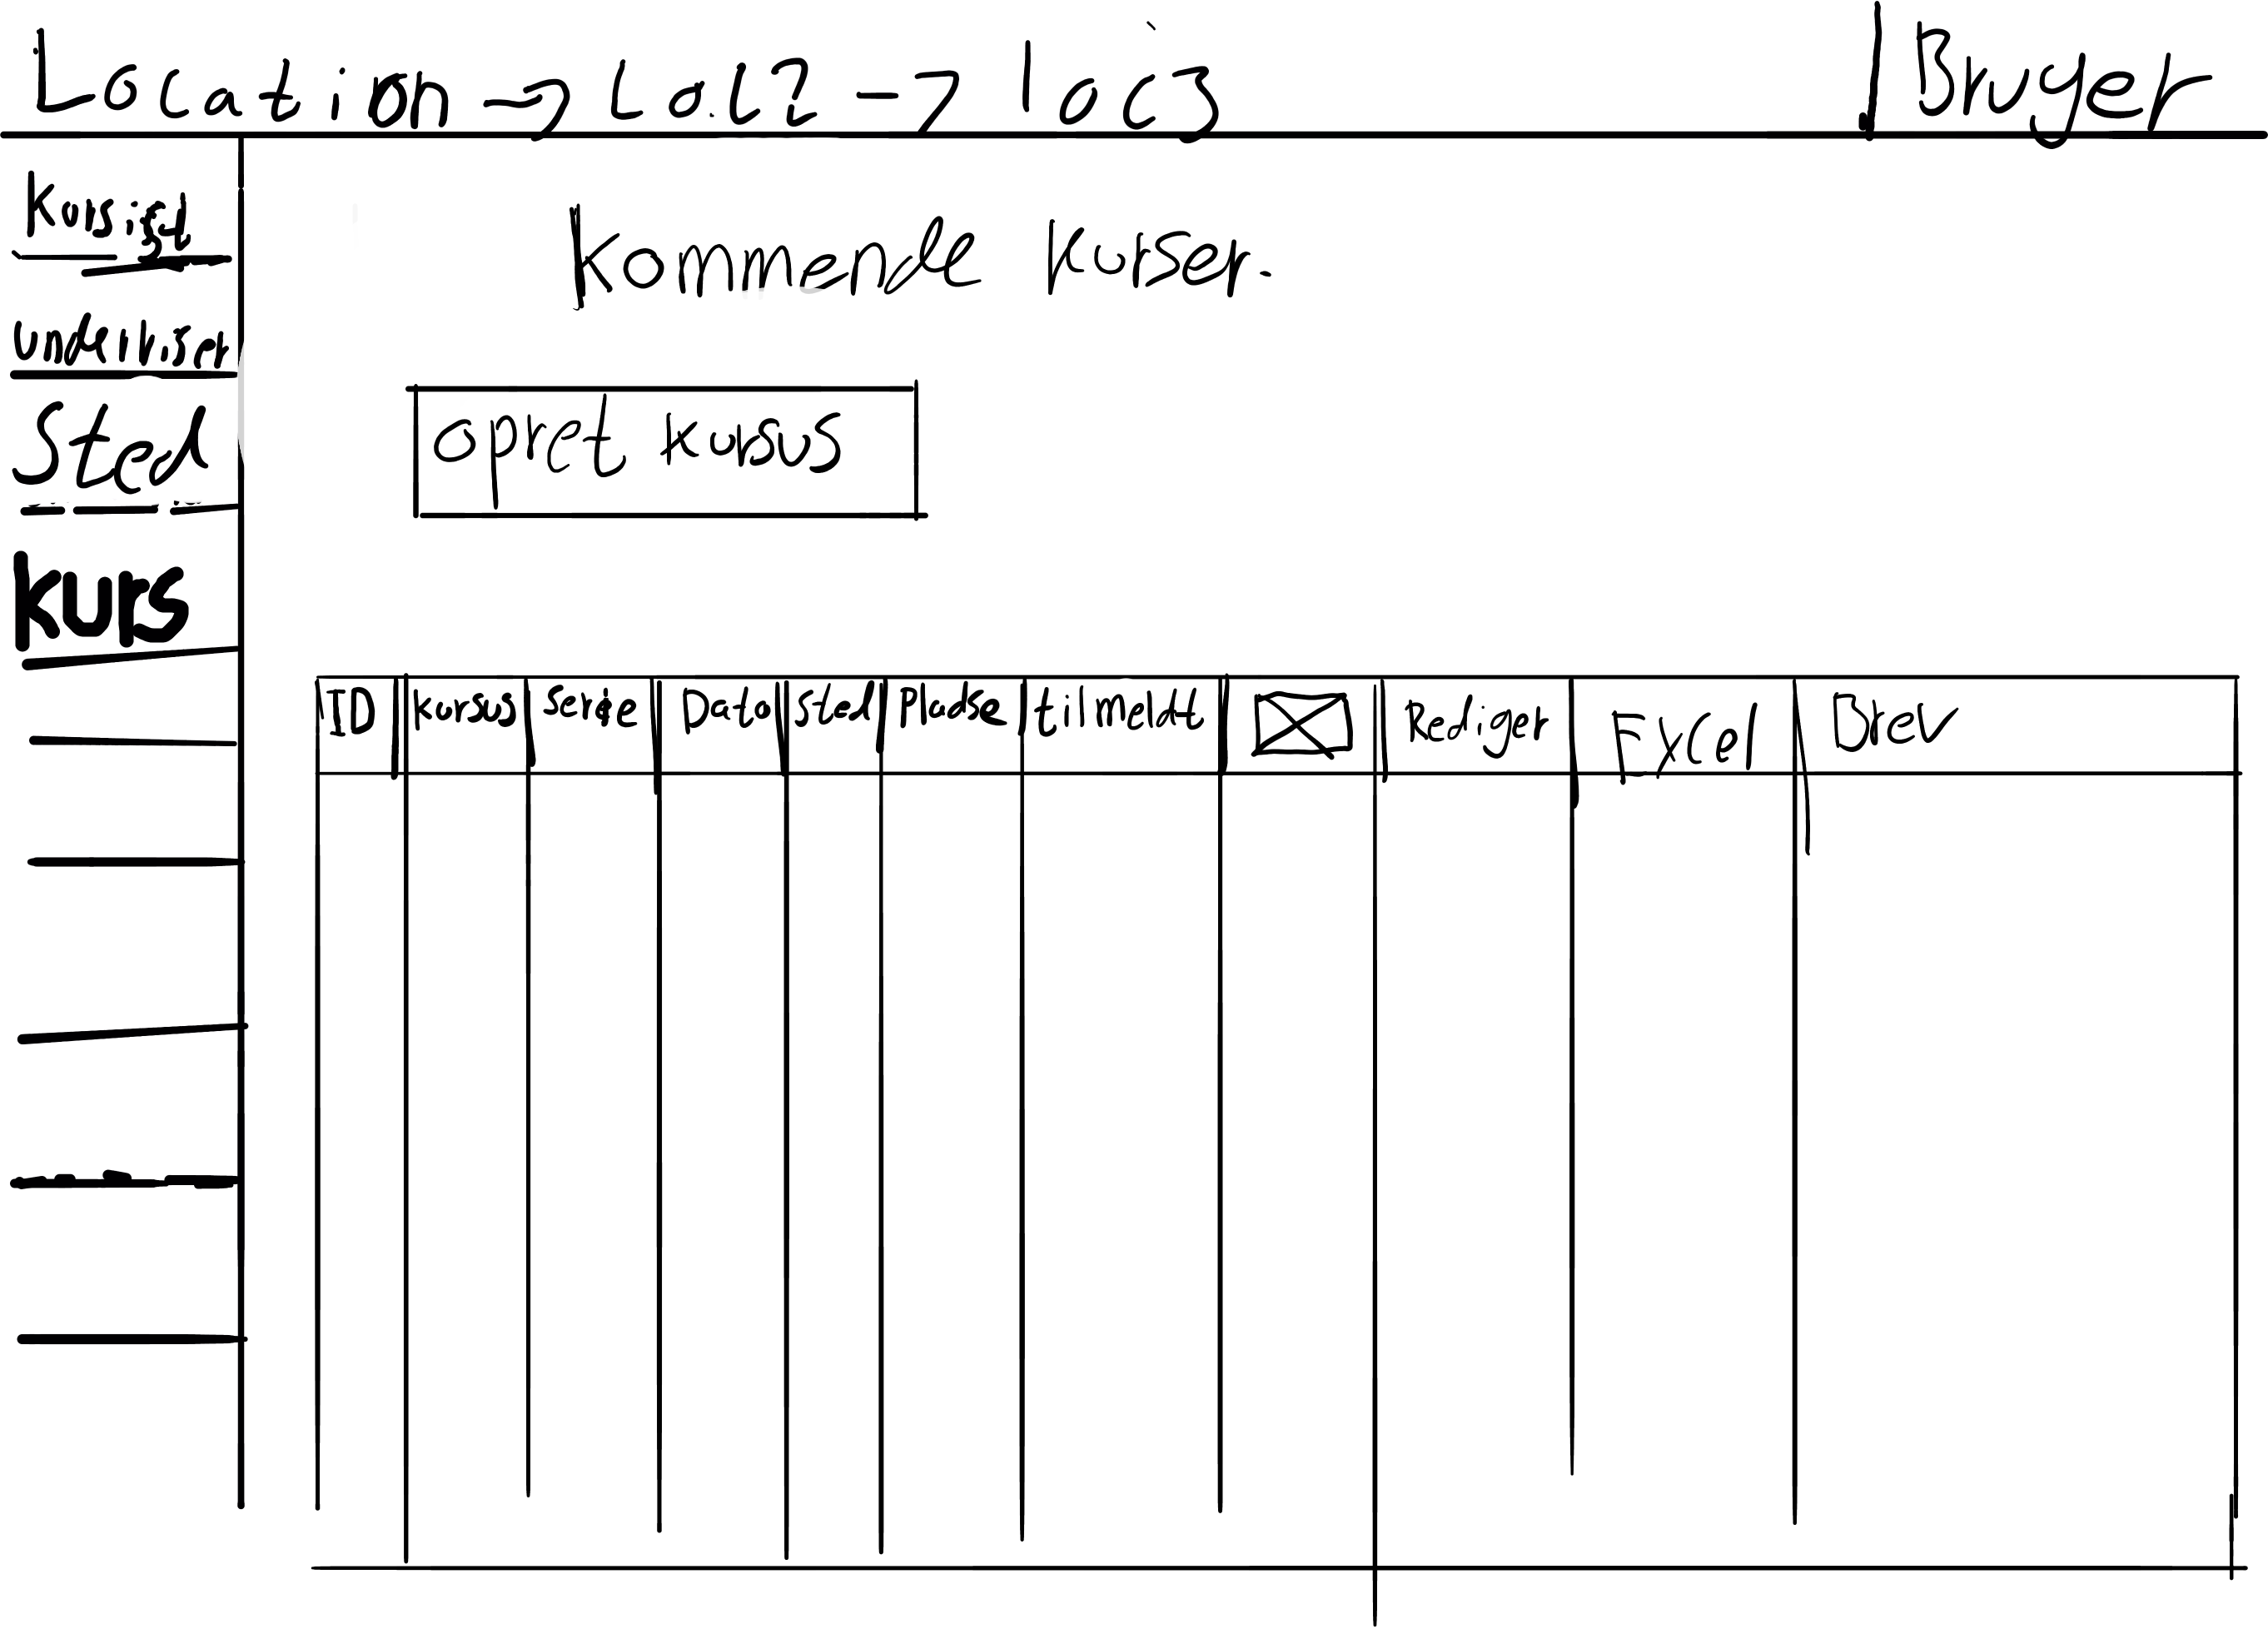 Location → Lol2 → loc3 Bruger
Kursist
Underviser
Sted
Kurs
Kommende Kurser.
opret kursus
ID Kursus Serie Dato Sted Pladse tilmeldt Rediger Excel Brev